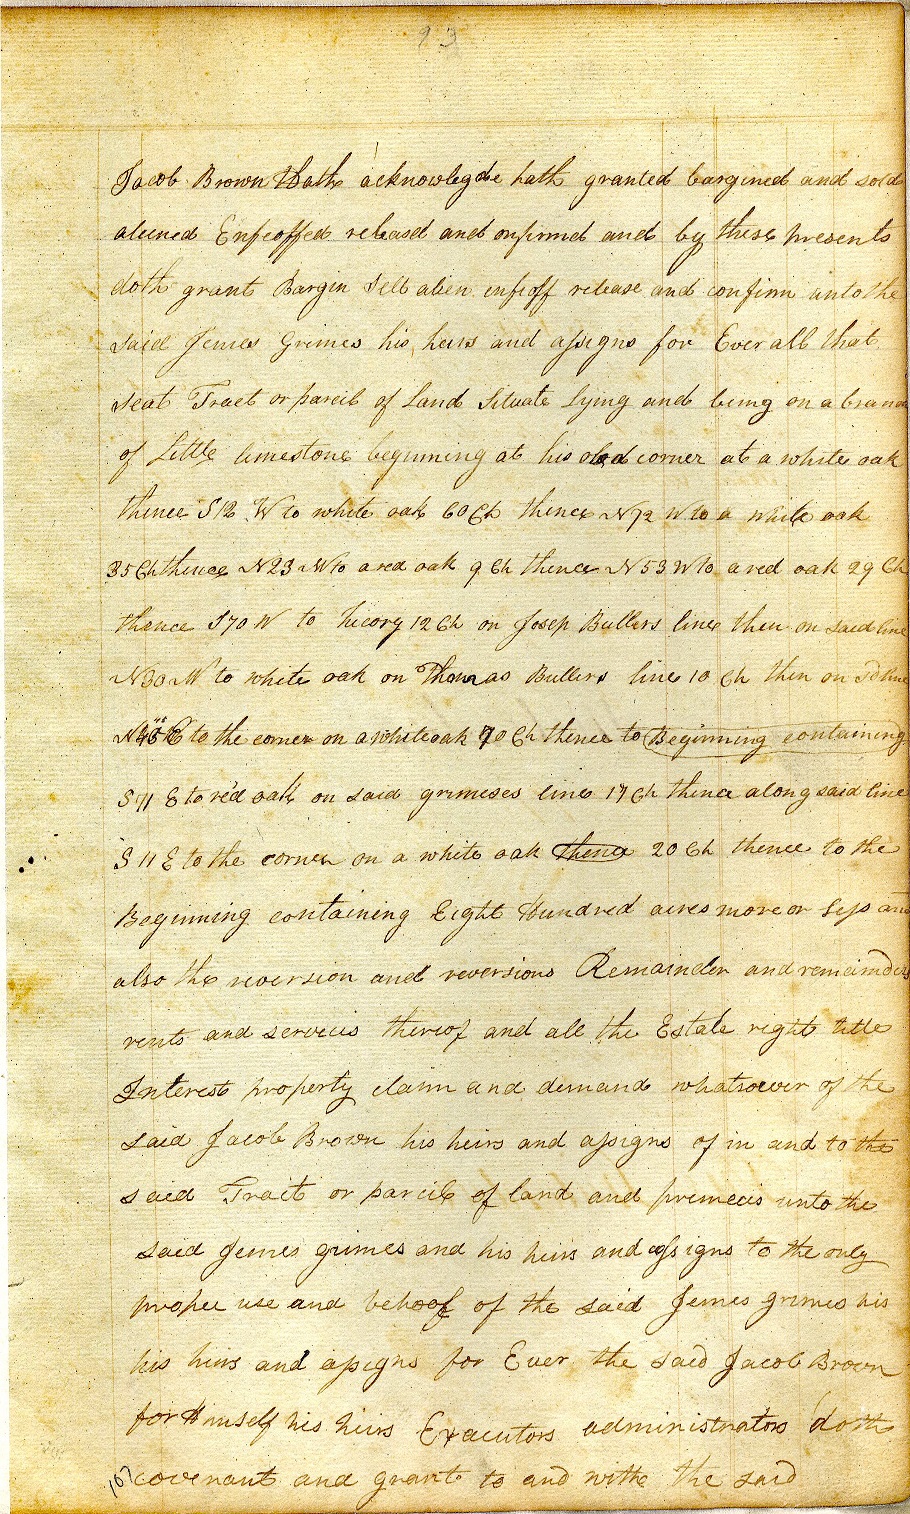 93
Jacob Brown Hath acknowlegde hath granted bargined and sold
aleened Enfeoffed relead and onfirmd and by these presents
doth grant Bargin Sell alien enfeoff release and confirm unto the
said Jemes Grimes his heirs and assigns for Ever all that
seat Tract or parcil of Land Situate lying and being on a branch
of Little limestone beginning at his old corner at a white oak
thence S 12 W to white oak 60 Ch thence N 72 W to a white oak
35 Ch thence N 23 W to a red oak 9 Ch thence N 53 W to a red oak 29 Ch
thence S 70 W to hicory 12 Ch on Josep Bullers line then on said line
N 30 W to white oak on Thomas Bullers line 10 Ch then on sd line
E to the corner on a white oak 70 Ch thence to Beginning containing
S 71 E to red oak on said grimeses line 17 Ch thence along said line
S 11 E to the corner on a white oak thence 20 Ch thence to the
Beginning containing Eight Hundred acres more or less and
also the reversion and reversions Remainder and remainders
rents and services thereof and all the Estate right title
Interest property claim and demand whatsoever of the
said Jacob Brown his heirs and assigns of in and to the
said Tract or parcil of land and premecis unto the
said Jemes grimes and his heirs and assigns to the only
proper use and behoof of the said Jemes grimes his
his heirs and assigns for Ever the said Jacob Brown
for Himself his heirs Executors administrators doth
covenant and grant to and withe the said
167